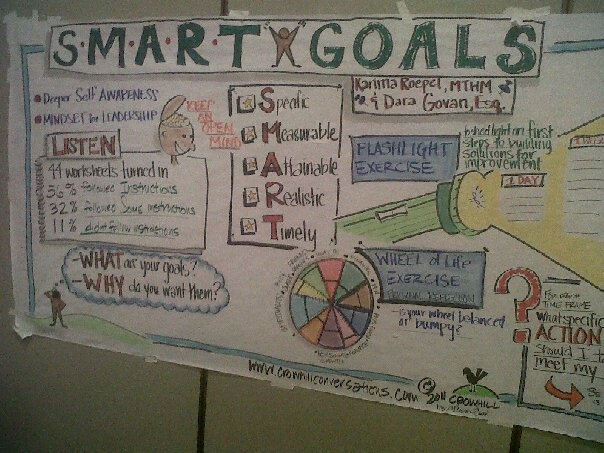 S·M·A·R·T GOALS
Karima Roepel, MTHM
& Dara Govan, Esq.
Deeper Self AWARENESS
MINDSET for LEADERSHIP
KEEP
AN
OPEN
MIND
LISTEN
44 worksheets turned in
56% followed Instructions
32% followed some instructions
11% didn't follow instructions
Specific
Measurable
Attainable
Realistic
Timely
SMART
FLASHLIGHT
EXERCISE
light on first
steps to building
solutions for
improvement
1 DAY
1 WEEK
-WHAT are your goals?
-WHY do you want them?
WHEEL of Life
EXERCISE
is your wheel balanced
or bumpy?
?
TIME FRAME
what specific
ACTION
Should I t
meet my
www.crowhillconversations.com
© 2011 CROWHILL